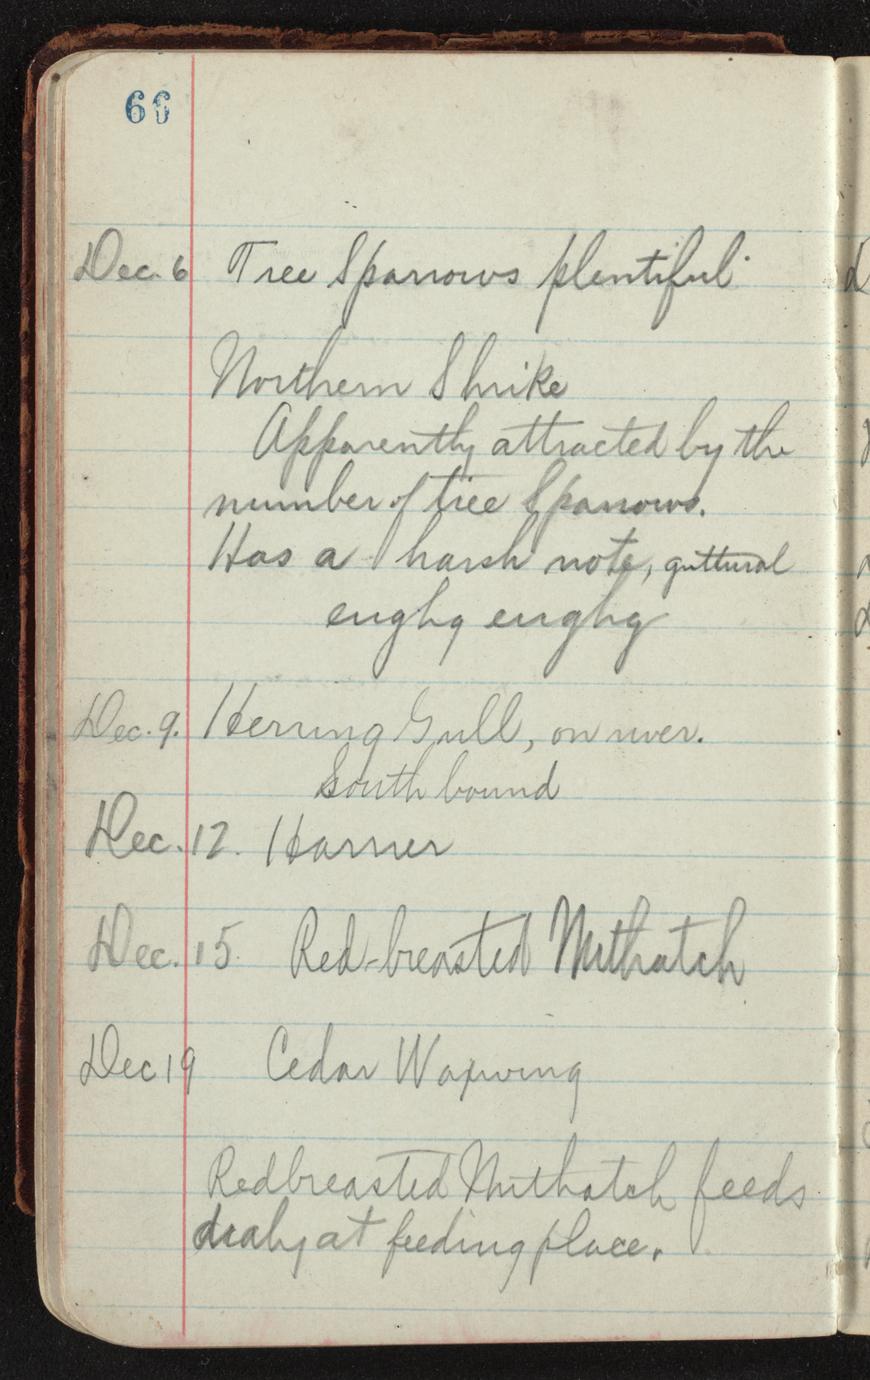 66
Dec. 6 Tree Sparrows plentiful
Northern Shrike
Apparently attracted by the
number of tree Sparrows.
Has a harsh note, guttural
enghq enghg
Dec. 9. Herring Gull, on river.
South bound
Dec. 12. Harrier
Dec. 15 Red-breasted Nuthatch
Dec 19 Cedar Waxwing
Redbreasted Nuthatch feeds
at feeding place.